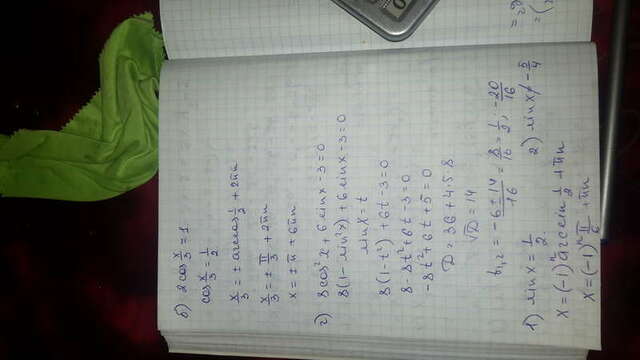 б) 2cos x/3 = 1
cos x/3 = 1/2
x/3 = ± arccos 1/2 + 2πn
x/3 = ± π/3 + 2πn
x = ± π + 6πn
г) 8cos²x + 6 sinx - 3 = 0
8(1 - sin²x) + 6 sinx - 3 = 0
sinx = t
8(1 - t²) + 6t - 3 = 0
8 - 8t² + 6t - 3 = 0
-8t² + 6t + 5 = 0
D = 36 + 4·5·8
√D = 14
t1,2 = -6 ± 14 / 16 = 8/16 = 1/2; -20/16
1) sinx = 1/2
2) sinx ≠ -5/4
x = (-1)ⁿ arcsin 1/2 + πn
x = (-1)ⁿ π/6 + πn